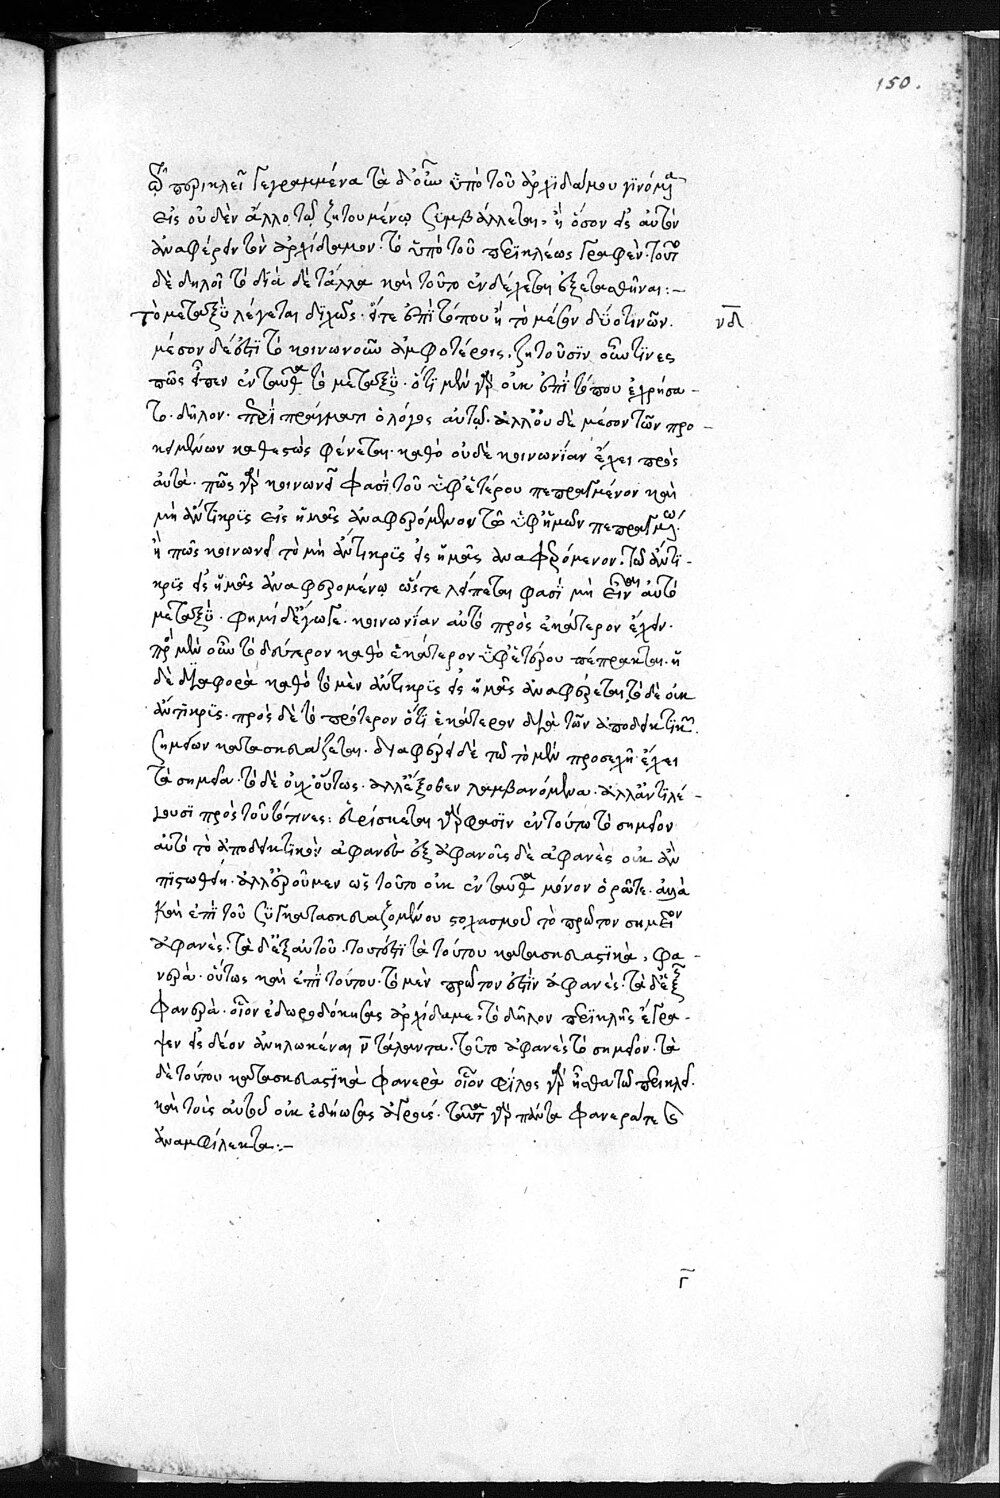 150.
τῶ περικλεῖ γεγραμμένα τὰ δ' οὖν ὑπὸ τοῦ ἀρχιδάμου γινόμενα
εἰς οὐδὲν ἄλλο τῶ ζητουμένω συμβάλλεται, ἢ ὅσον εἰς αὐτὸν
ἀναφέρειν τὸν ἀρχίδαμον· τὸ ὑπὸ τοῦ περικλέως γραφέν· τοῦτο
δὲ δηλοῖ τὸ διὰ δὲ τἄλλα καὶ τοῦτο ἐνδέχεται ἐξετασθῆναι:–
τὸ μεταξὺ λέγεται διχῶς· ὅτε ἐπὶ τόπου ἢ τὸ μέσον δύο τινῶν·
νδ
μέσον δέ ἐστι τὸ κοινωνοῦν ἀμφοτέροις· ζητοῦσιν οὖν τινες
πῶς εἶπεν ἐνταῦθα τὸ μεταξύ· ὅτι μὲν γὰρ οὐκ ἐπὶ τόπου ἐχρήσα-
το· δῆλον· περὶ πράγματι ὁ λόγος αὐτῶ· ἀλλ' οὐδὲ μέσον τῶν προ-
κειμένων καθεστὼς φαίνεται· καθὸ οὐδὲ κοινωνίαν ἔχει πρὸς
αὐτά· πῶς γὰρ κοινωνεῖ φασὶ τοῦ ὑφ' ἑτέρου πεπραγμένον καὶ
μὴ ἄντικρις εἰς ἡμᾶς ἀναφερόμενον τῶ ὑφ' ἡμῶν πεπραγμένω·
ἢ πῶς κοινωνεῖ τὸ μὴ ἄντικρις εἰς ἡμᾶς ἀναφερόμενον· τῶ ἄντι-
κρις εἰς ἡμᾶς ἀναφερομένω ὥστε λείπεται φασὶ μὴ εἶναι αὐτὸ
μεταξύ· φημὶ δὲ ἔγωγε· κοινωνίαν αὐτὸ πρὸς ἑκάτερον ἔχειν·
πρὸς μὲν οὖν τὸ δεύτερον καθὸ ἑκάτερον ὑφ' ἑτέρου πέπρακται· ἡ
δὲ διαφορὰ καθὸ τὸ μὲν ἄντικρις εἰς ἡμᾶς ἀναφέρεται, τὸ δὲ οὐκ
ἄντικρις· πρὸς δὲ τὸ πρότερον ὅτι ἑκάτερον διὰ τῶν ἀποδεικτικῶν
σημείων κατασκευάζεται· διαφέρει δὲ τῶ τὸ μὲν προσεχῆ ἔχει
τὰ σημεῖα· τὸ δὲ οὐχ οὕτως· ἀλλ' ἔξωθεν λαμβανόμενα· ἀλλ' ἀντιλέ-
γουσι πρὸς τοῦτό τινες: εὑρίσκεται γὰρ φασὶν ἐν τούτω τὸ σημεῖον
αὐτὸ τὸ ἀποδεικτικὸν ἀφανὲς ἐξ ἀφανοῦς δὲ ἀφανὲς οὐκ ἂν
πιστωθείη· ἀλλ' ἐροῦμεν ὡς τοῦτο οὐκ ἐνταῦθα μόνον ὁρᾶται· ἀλλὰ
καὶ ἐπὶ τοῦ συγκατασκευαζομένου στοχασμοῦ τὸ πρῶτον σημεῖον
ἀφανές· τὰ δ' ἐξ αὐτοῦ· τουτέστι τὰ τούτου κατασκευαστικὰ, φα-
νερά· οὕτως καὶ ἐπὶ τούτου· τὸ μὲν πρῶτον ἐστὶν ἀφανές· τὰ δ' ἑξῆς
φανερά· οἷον ἐδωροδόκησας ἀρχίδαμε, τὸ δῆλον περικλῆς ἔγρα-
ψεν εἰς δέον ἀνηλωκέναι ν τάλαντα· τοῦτο ἀφανὲς τὸ σημεῖον· τὰ
δὲ τούτου κατασκευαστικὰ φανερὰ οἷον φίλος γὰρ ἦσθα τῶ περικλεῖ·
καὶ τοὺς αὐτοῦ οὐκ ἐδήωσας ἀγρούς· ταῦτα γὰρ πάντα φανερά τε καὶ
ἀναμφίλεκτα:–
γ